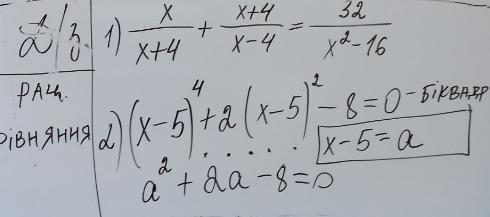 Д/З
1) x/(x+4) + (x+4)/(x-4) = 32/(x²-16)
РАЦ.
РІВНЯННЯ
2) (x-5)⁴ + 2(x-5)² - 8 = 0 - БІКВАДР
x-5=a
a² + 2a - 8 = 0